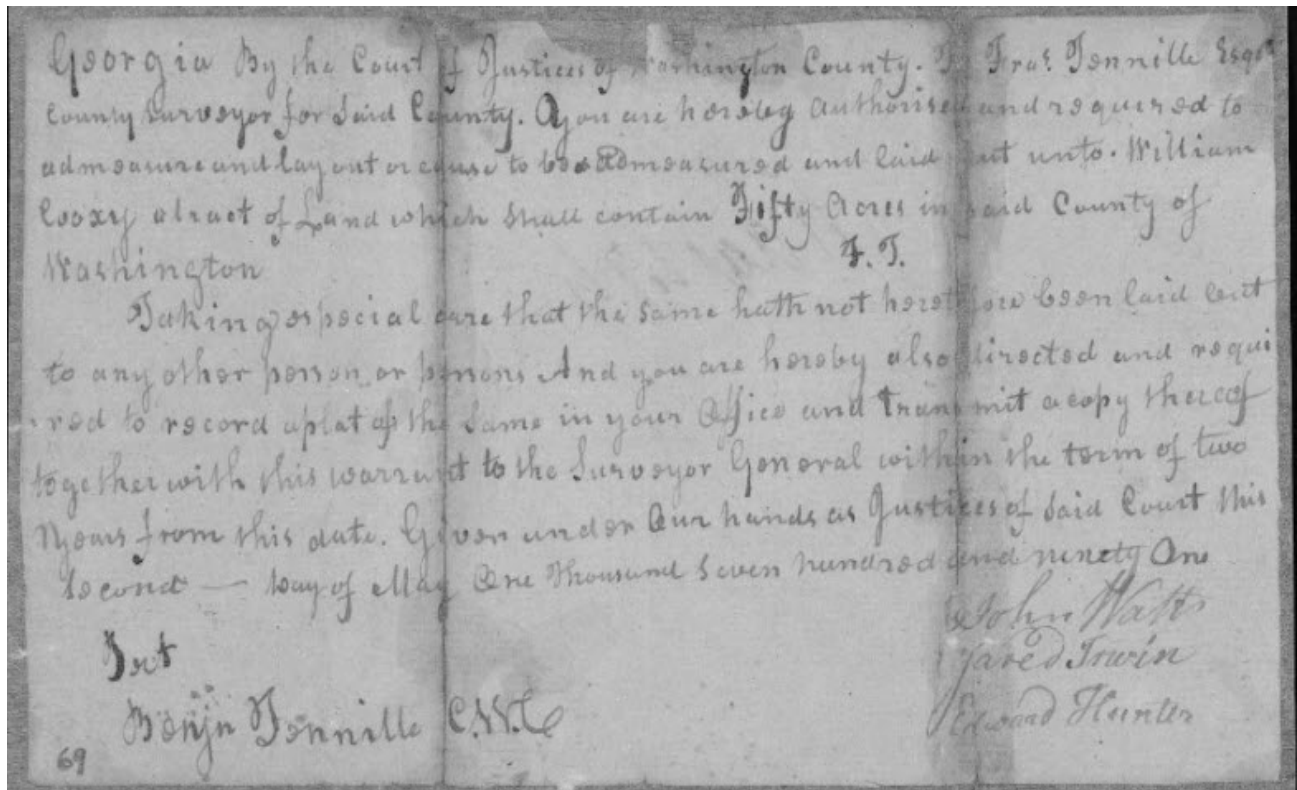 Georgia By the Court of Justices of Washington County. To Fras. Tennille Esqr
County Surveyor for Said County. You are hereby authorised and required to
admeasure and lay out or cause to be admeasured and laid out unto. William
a tract of Land which shall contain Fifty Acres in said County of
Washington
F. T.
Taking especial care that the same hath not heretofore been laid out
to any other person or persons And you are hereby also directed and requi
red to record a plat of the same in your Office and transmit a copy thereof
together with this warrant to the Surveyor General within the term of two
Years from this date. Given under Our hands as Justices of Said Court this
Second — Day of May One Thousand Seven hundred and ninety One
John Watts
Jared Irwin
Edward Hunter
Benjn Tennille C.W.C
69